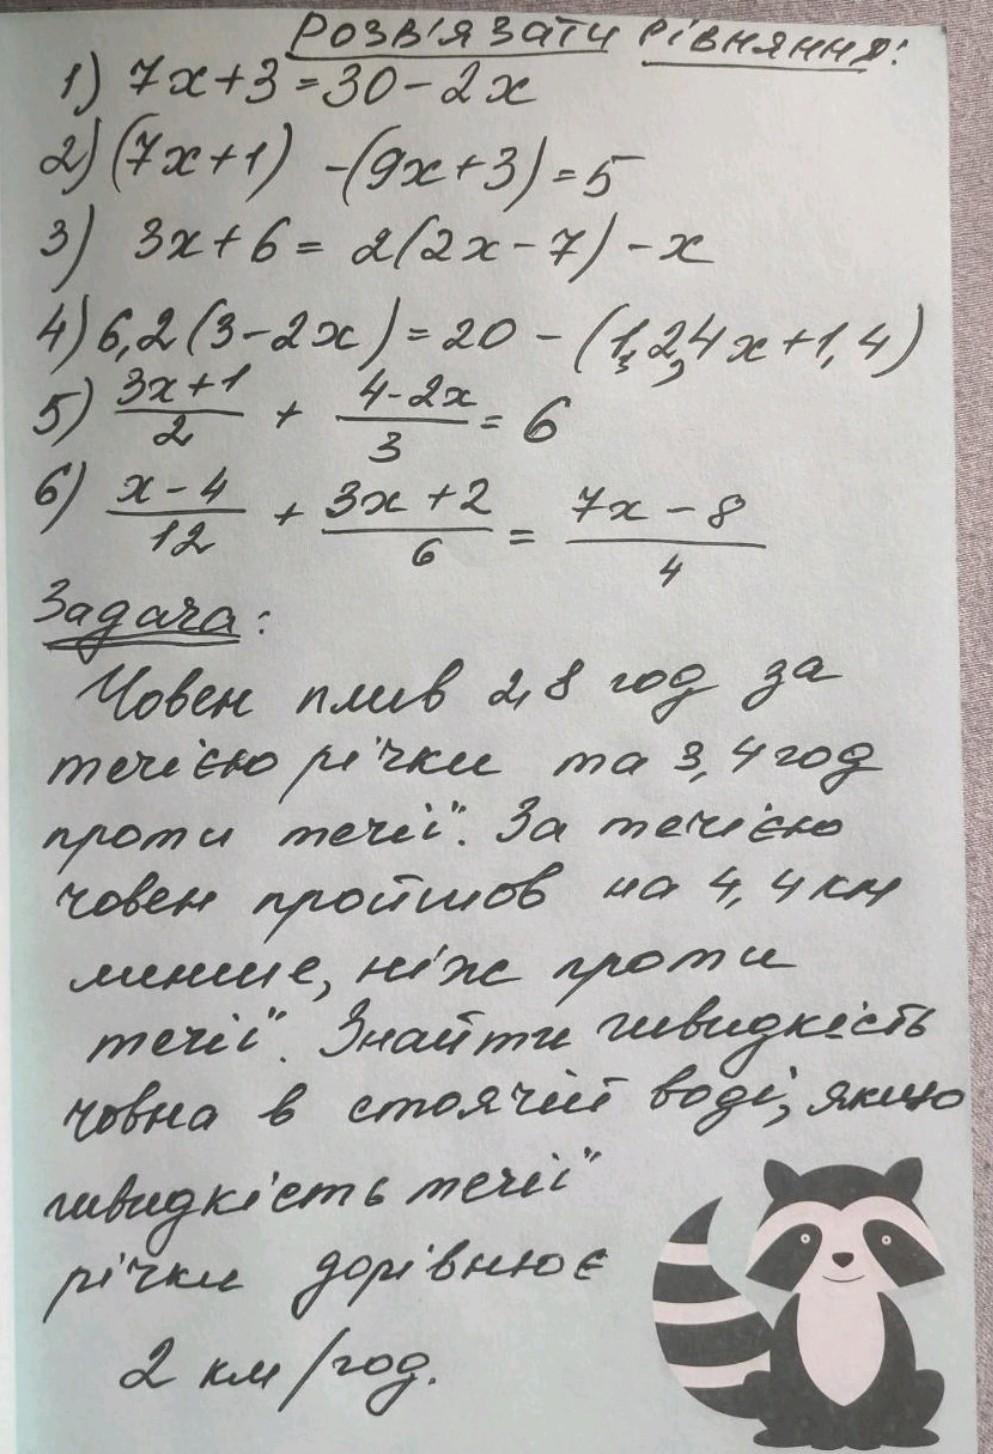 Розв'язати рівняння:
1) 7x+3=30-2x
2) (7x+1) -(9x+3)=5
3) 3x+6= 2(2x-7)-x
4) 6,2(3-2x)=20-(1,2,4x+1,4)
5) (3x+1)/2 + (4-2x)/3 = 6
6) (x-4)/12 + (3x+2)/6 = (7x-8)/4
Задача:
Човен плив 2,8 год за
течією річки та 3,4 год
проти течії. За течією
човен пройшов на 4,4 км
менше, ніж проти
течії. Знайти швидкість
човна в стоячій воді, якщо
швидкість течії
річки дорівнює
2 км/год.